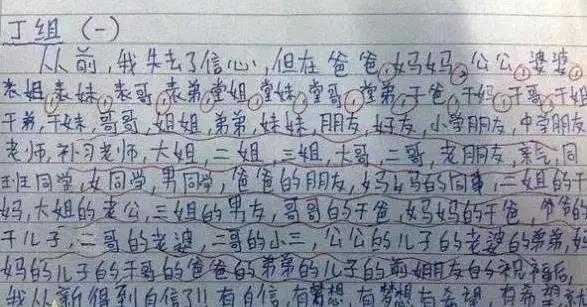 丁组（一）
从前，我失去了信心，但在爸爸，妈妈，公公，婆婆
表姐，表妹，表哥，表弟，堂姐，堂妹，堂哥，堂弟，干爸，干妈，干哥，干姐
干弟，干妹，哥哥，姐姐，弟弟，妹妹，朋友，好友，小学朋友，中学朋友
老师，补习老师，大姐，二姐，三姐，大哥，二哥，老朋友，亲气，同
班同学，女同学，男同学，爸爸的朋友，妈妈的同事，二姐的干
妈，大姐的老公，三姐的男友，哥哥的干爸，妈妈的干爸，爷爷的
干儿子，二哥的老婆，二哥的小三，公公的儿子的老婆的弟弟，
妈的儿子的干哥的爸爸的弟弟的儿子的前姐朋友的祝福后，
我从新得到自信了!! 有自信，有梦想，有梦想，有希望，有希望